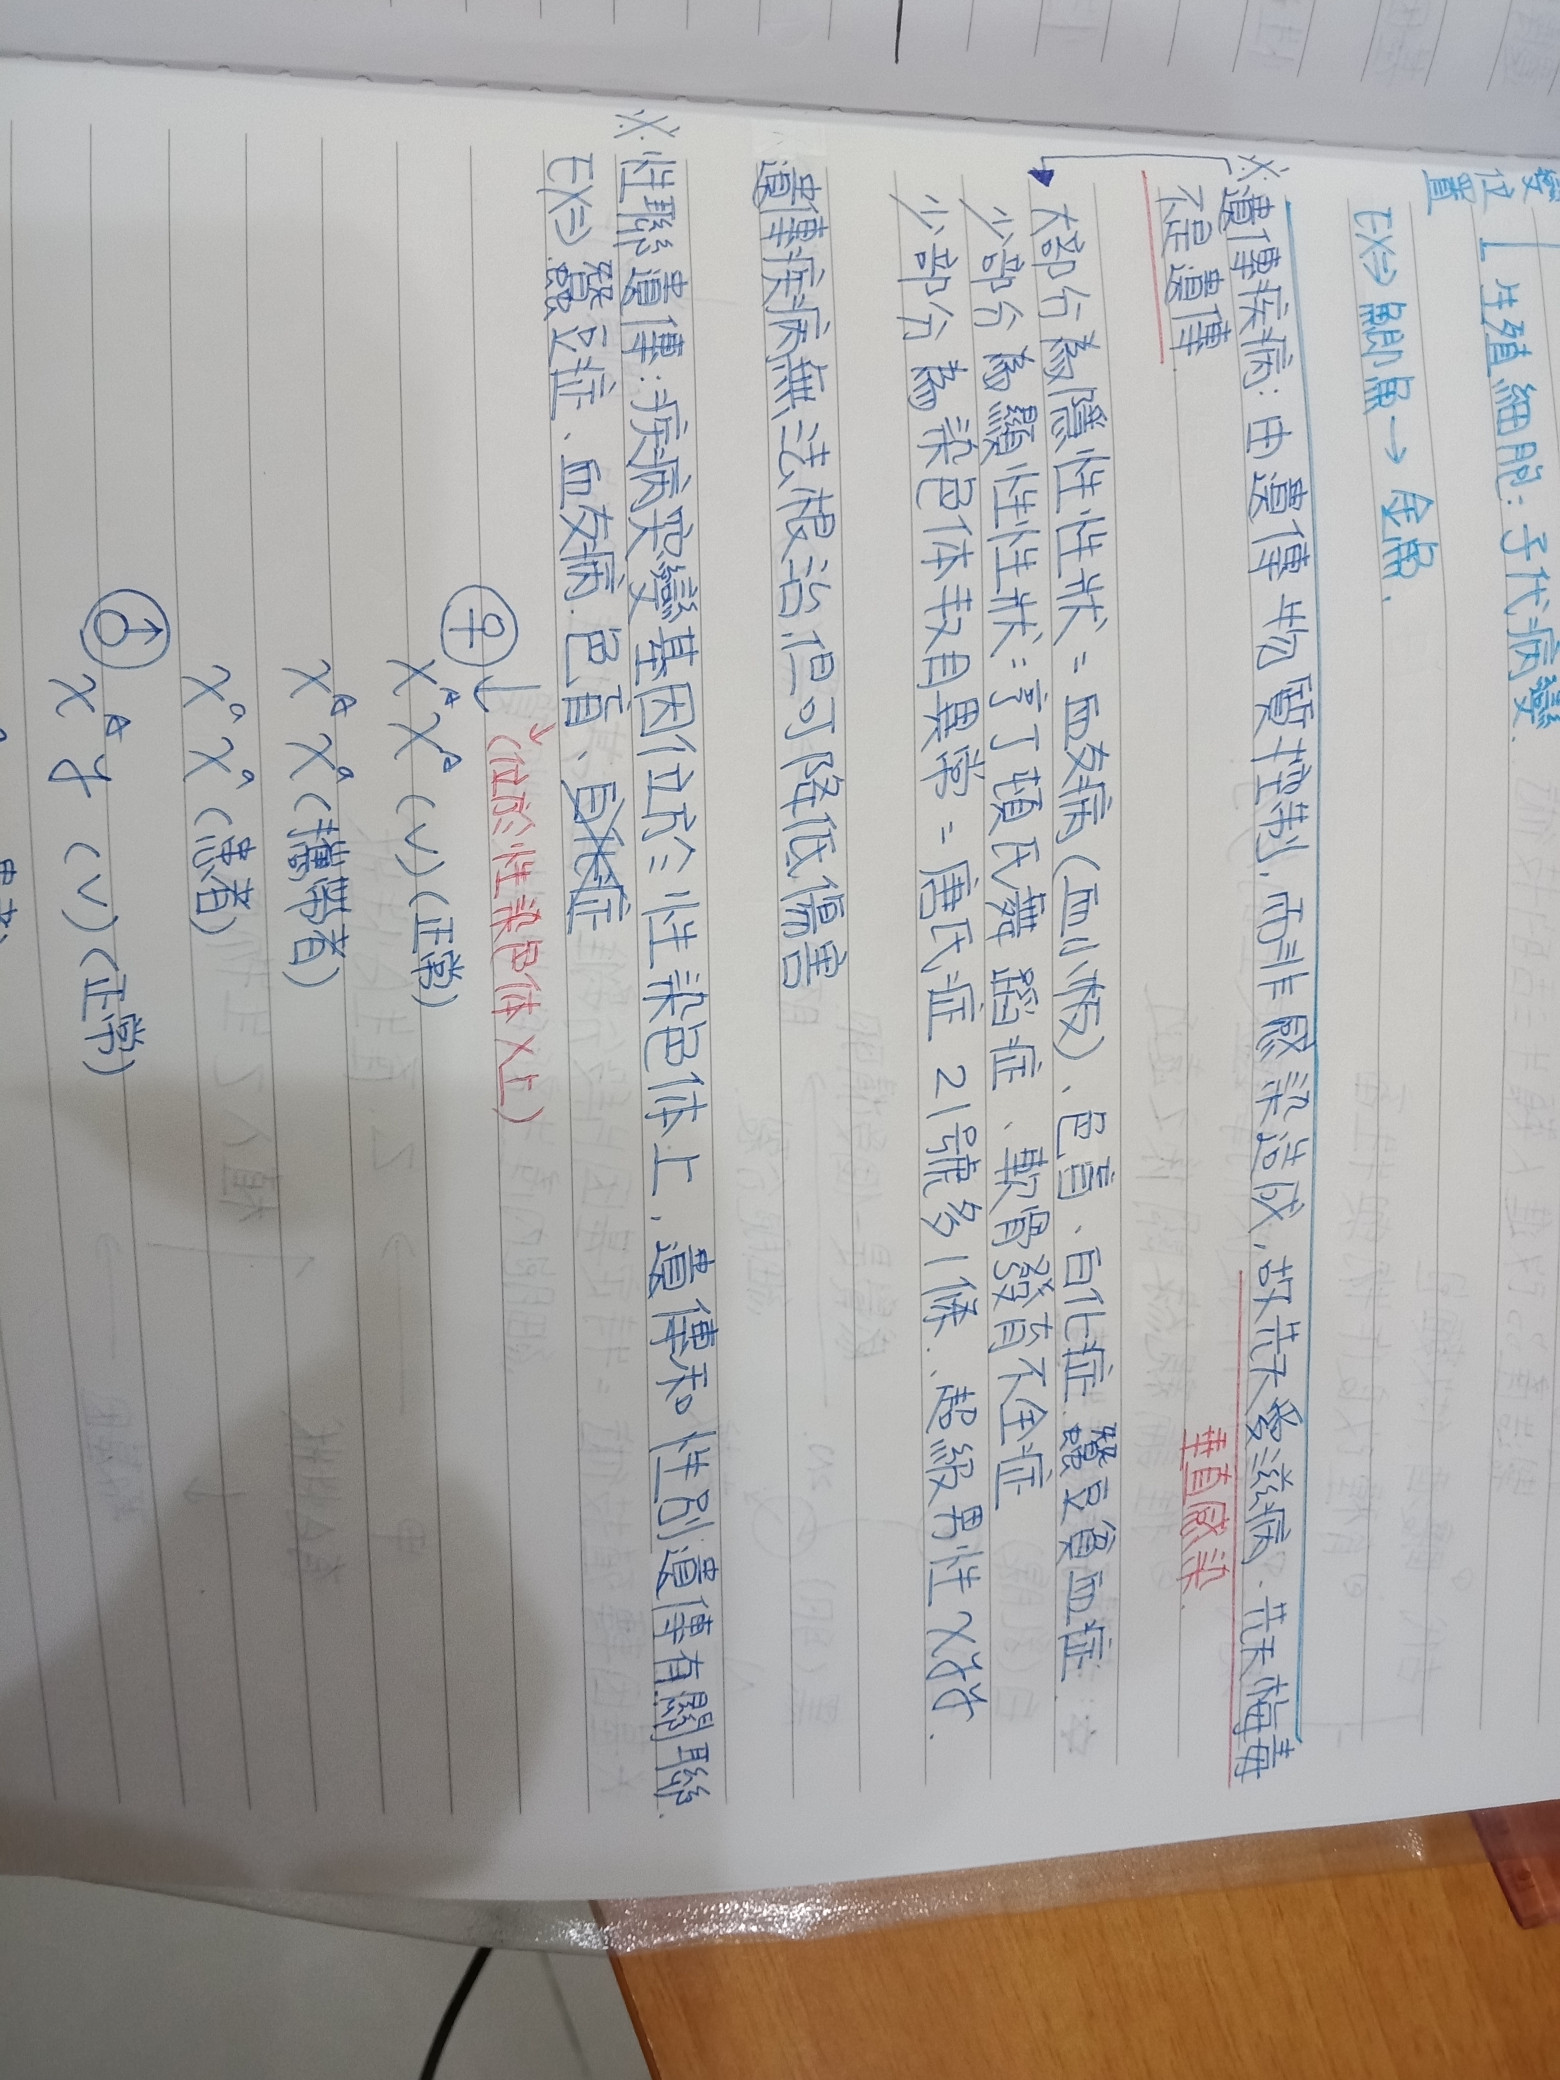 變位置
生殖細胞：子代病變.
EX⇒ 鯽魚 → 金魚.
※遺傳疾病：由遺傳物質控制,而非感染造成,故先天愛滋病.先天梅毒
不是遺傳
垂直感染.
大部分為隱性性狀=血友病(血小板)、色盲、白化症.蠶豆貧血症.
少部分為顯性性狀:亨丁頓氏舞蹈症、軟骨發育不全症
少部分為染色体數目異常=唐氏症 21號多1條.、超級男性XYY.
遺傳疾病無法根治但可降低傷害
※性聯遺傳:疾病突變基因位於性染色体上,遺傳和性別遺傳有關聯.
EX⇒蠶豆症、血友病.色盲、
(位於性染色体X上)
♀↓
X^A X^A (V)(正常)
X^A X^a (攜帶者)
X^a X^a (患者)
♂
X^A Y (V)(正常)